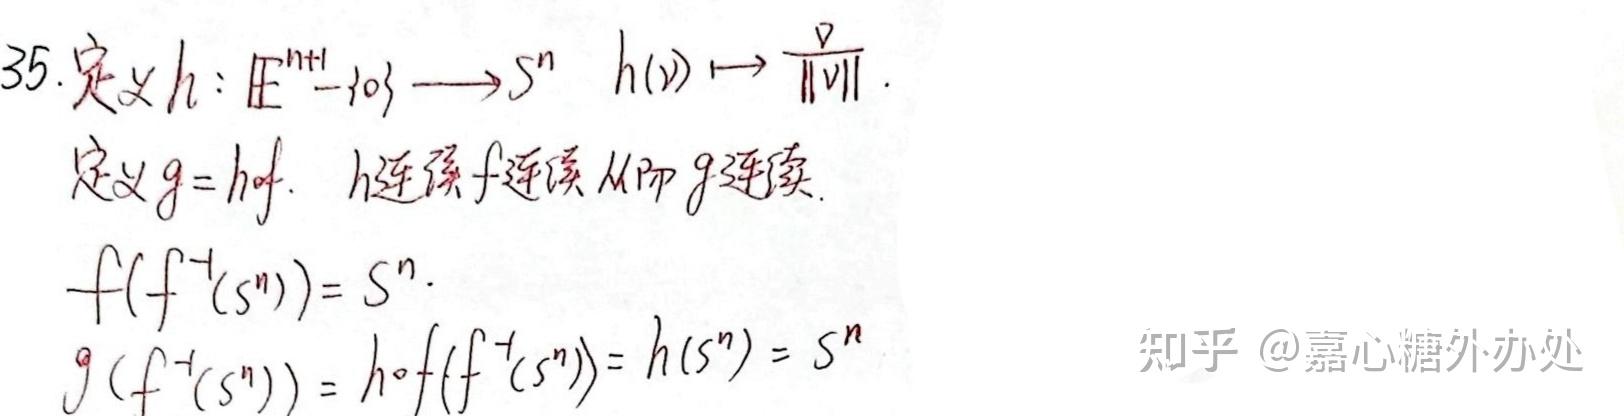 35. 定义h: 𝔼ⁿ⁺¹-{0} ⟶ Sⁿ h(v) ↦ v/||v||.
定义g=h∘f. h连续f连续从而g连续.
f(f⁻¹(Sⁿ))=Sⁿ.
g(f⁻¹(Sⁿ))=h∘f(f⁻¹(Sⁿ))=h(Sⁿ)=Sⁿ
知乎 @嘉心糖外办处